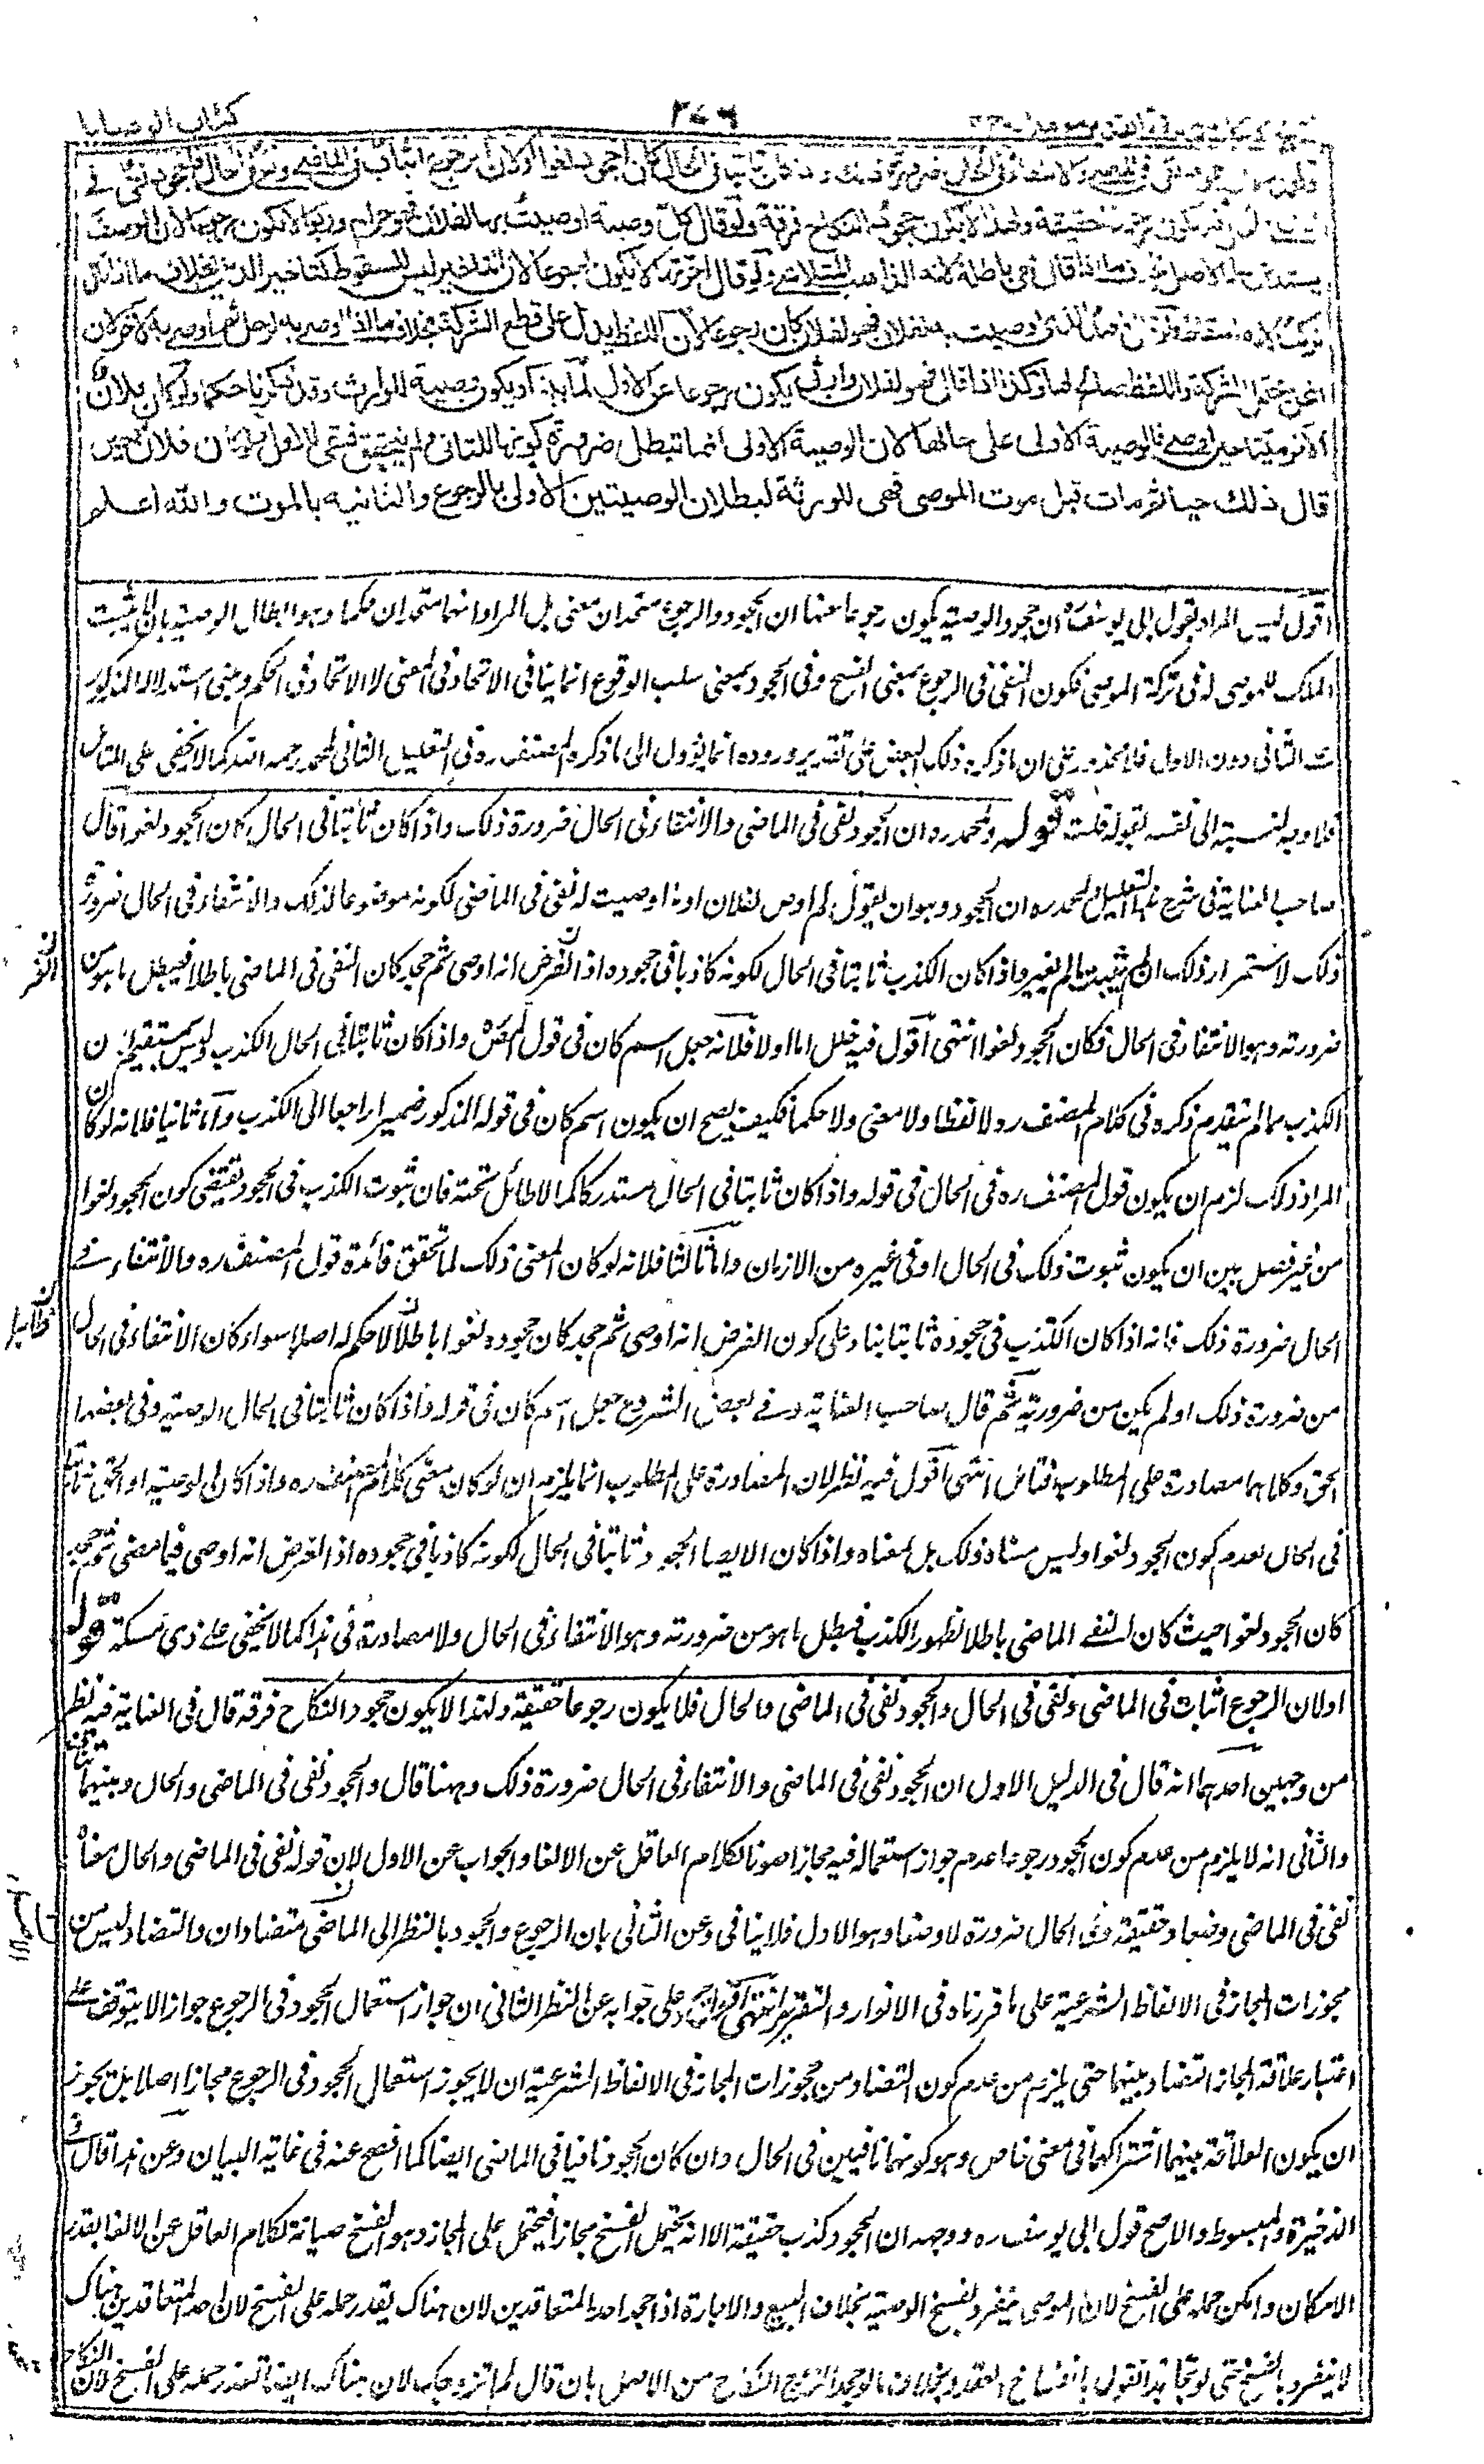 كتاب الوصايا
ولمحمد ان الجحود نفي في الماضي والانتفاء في الحال ضرورة ذلك واذا كان ثابتا في الحال كان الجحود لغوا اولان الرجوع اثبات في الماضي ونفي في الحال والجحود نفي في
فلا يكون رجوعا حقيقة ولهذا لا يكون جحود النكاح فرقة ولو قال كل وصية اوصيت بها لفلان فهو حرام وربوا لا يكون رجوعا لان الوصف
يستدعي بقاء الاصل بخلاف ما اذا قال فهي باطلة لانه الذاهب المتلاشي ولو قال اخرتها لا يكون رجوعا لان التاخير ليس للسقوط كتاخير الدين بخلاف ما اذا قال
تركت لانه اسقاط ولو قال العبد الذي اوصيت به لفلان فهو لفلان كان رجوعا لان اللفظ يدل على قطع الشركة بخلاف ما اذا اوصى به لرجل ثم اوصى به لآخر لان
المحل يحتمل الشركة واللفظ صالح لها وكذا اذا قال فهو لفلان وارثي يكون رجوعا عن الاول لما بينا ويكون وصية للوارث وقد ذكرنا حكمه ولو كان فلان
الآخر ميتا حين اوصى فالوصية الاولى على حالها لان الوصية الاولى انما تبطل ضرورة كونها للثاني ولم يتحقق فبقي للاول ولو كان فلان حين
قال ذلك حيا ثم مات قبل موت الموصي فهي للورثة لبطلان الوصيتين الاولى بالرجوع والثانيه بالموت والله اعلم
اقول ليس المراد بقول ابي يوسف ره ان جحود الوصية يكون رجوعا عنها ان الجحود والرجوع متحدان معنى بل المراد انهما متحدان حكما وهو ابطال الوصية بان لا يثبت
الملك للموصى له في تركة الموصي فكون النفي في الرجوع بمعنى الفسخ وفي الجحود بمعنى سلب الوقوع انما ينافي الاتحاد في المعنى لا الاتحاد في الحكم ومبنى استدلاله المذكور
الثاني دون الاول فلا محذور على ان ما ذكره ذلك البعض على تقدير وروده انما يؤول الى ما ذكره المصنف ره في التعليل الثاني لمحمد رحمه الله كما لا يخفى على المتامل
فلا وجه لنسبته الى نفسه بقوله قلت قوله ولمحمد ره ان الجحود نفي في الماضي والانتفاء في الحال ضرورة ذلك واذا كان ثابتا في الحال كان الجحود لغوا قال
صاحب العناية في شرح هذا التعليل لمحمد ره ان الجحود وهو ان يقول لم اوص لفلان او ما اوصيت له نفي في الماضي لكونه موضوعا لذلك والانتفاء في الحال ضرورة
ذلك لاستمرار ذلك ان لم يثبت ما لم يغير واذا كان الكذب ثابتا في الحال لكونه كاذبا في جحوده اذ الفرض انه اوصى ثم جحد كان النفي في الماضي باطلا فيبطل ما هو من
ضرورته وهو الانتفاء في الحال فكان الجحود لغوا انتهى اقول فيه خلل اما اولا فلانه جعل اسم كان في قول المص ره واذا كان ثابتا في الحال الكذب وليس بمستقيم لان
الكذب مما لم يتقدم ذكره في كلام المصنف ره لا لفظا ولا معنى ولا حكما فكيف يصح ان يكون اسم كان في قوله المذكور ضميرا راجعا الى الكذب واما ثانيا فلانه لو كان
المراد ذلك لزم ان يكون قول المصنف ره في الحال في قوله واذا كان ثابتا في الحال مستدركا لا طائل تحته فان ثبوت الكذب في الجحود يقتضي كون الجحود لغوا
من غير فصل بين ان يكون ثبوت ذلك في الحال او في غيره من الازمان واما ثالثا فلانه لو كان المعنى ذلك لما تحقق فائدة قول المصنف ره والانتفاء في
الحال ضرورة ذلك فانه اذا كان الكذب في جحوده ثابتا بناء على كون الفرض انه اوصى ثم جحد كان جحوده لغوا باطلا لا حكم له اصلا سواء كان الانتفاء في الحال
من ضرورة ذلك او لم يكن من ضرورته ثم قال صاحب العناية وفي بعض الشروح جعل اسم كان في قوله واذا كان ثابتا في الحال الوصية وفي بعضها
الحق وكلاهما مصادرة على المطلوب فتامل انتهى اقول فيه نظر لان المصادرة على المطلوب انما يلزم ان لو كان معنى كلام المصنف ره واذا كان الوصية او الحق ثابتا
في الحال بعدم كون الجحود لغوا وليس معناه ذلك بل معناه واذا كان الايصاء الجحود ثابتا في الحال لكونه كاذبا في جحوده اذ الفرض انه اوصى فيما مضى ثم جحد
كان الجحود لغوا حيث كان النفي الماضي باطلا لظهور الكذب فبطل ما هو من ضرورته وهو الانتفاء في الحال ولا مصادرة في هذا كما لا يخفى على ذي مسكة قوله
اولان الرجوع اثبات في الماضي ونفي في الحال والجحود نفي في الماضي والحال فلا يكون رجوعا حقيقة ولهذا لا يكون جحود النكاح فرقة قال في العناية فيه نظر
من وجهين احدهما انه قال في الدليل الاول ان الجحود نفي في الماضي والانتفاء في الحال ضرورة ذلك وههنا قال والجحود نفي في الماضي والحال وبينهما تناف
والثاني انه لا يلزم من عدم كون الجحود رجوعا عدم جواز استعماله فيه مجازا صونا لكلام العاقل عن الالغاء والجواب عن الاول ان قوله نفي في الماضي والحال معناه
نفي في الماضي وضعا وحقيقة وفي الحال ضرورة لا وضعا وهو الاول فلا ينافي وعن الثاني بان الرجوع والجحود بالنظر الى الماضي متضادان والتضاد ليس من
مجوزات المجاز في الالفاظ الشرعية على ما قررناه في الانوار والتقرير انتهى اقول يرد على جوابه عن النظر الثاني ان جواز استعمال الجحود في الرجوع جوازا لا يتوقف على
اعتبار علاقة المجاز التضاد بينهما حتى يلزم من عدم كون التضاد من مجوزات المجاز في الالفاظ الشرعية ان لا يجوز استعمال الجحود في الرجوع مجازا اصلا بل يجوز
ان يكون العلاقة بينهما اشتراكهما في معنى خاص وهو كونهما نافيين في الحال وان كان الجحود نافيا في الماضي ايضا كما افصح عنه في غاية البيان وعن هذا قال في
الذخيرة والمبسوط والاصح قول ابي يوسف ره ووجهه ان الجحود كذب حقيقة الا انه يحتمل الفسخ مجازا فيحمل على المجاز وهو الفسخ صيانة لكلام العاقل عن الالغاء بقدر
الامكان وامكن حمله على الفسخ لان الموصي ينفرد بفسخ الوصية بخلاف البيع والاجارة اذا جحد احد المتعاقدين لان هناك تعذر حمله على الفسخ لان احد المتعاقدين هناك
لا ينفرد بالفسخ حتى لو تجاحدا نقول بانفساخ العقد وبخلاف ما لو جحد الزوج النكاح من الاصل بان قال لم اتزوجك لان هناك ايضا تعذر حمله على الفسخ لان النكاح